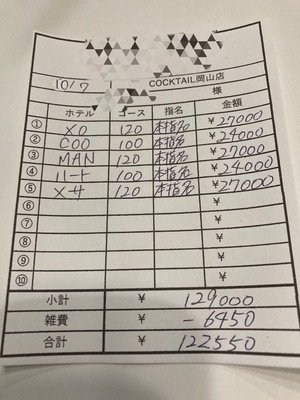 10/7
COCKTAIL岡山店
様
ホテル コース 指名 金額
① XO 120 本指名 ¥27000
② COO 100 本指名 ¥24000
③ MAN 120 本指名 ¥27000
④ ハート 100 本指名 ¥24000
⑤ メサ 120 本指名 ¥27000
⑥ ¥
⑦ ¥
⑧ ¥
⑨ ¥
⑩ ¥
小計 ¥ 129000
雑費 ¥ -6450
合計 ¥ 122550